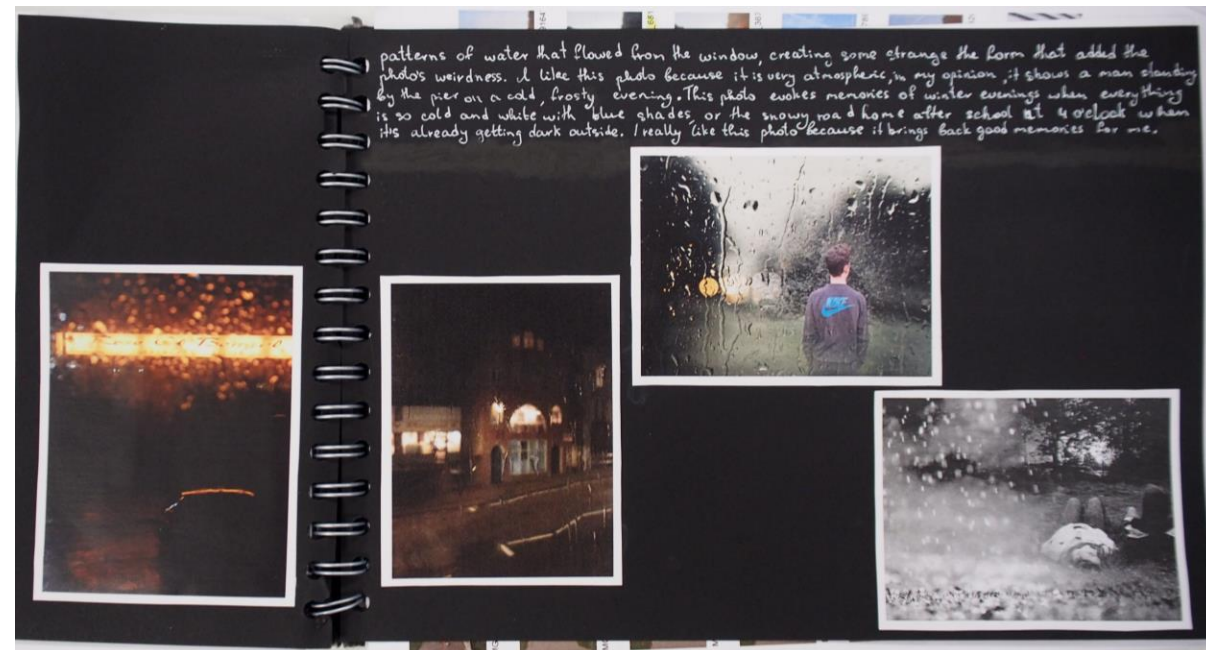 patterns of water that flowed from the window, creating some strange the form that added the
photo's weirdness. I like this photo because it is very atmospheric, in my opinion, it shows a man standing
by the pier on a cold, frosty evening. This photo evokes memories of winter evenings when everything
is so cold and white with blue shades, or the snowy road home after school at 4 o'clock when
it's already getting dark outside. I really like this photo because it brings back good memories for me.